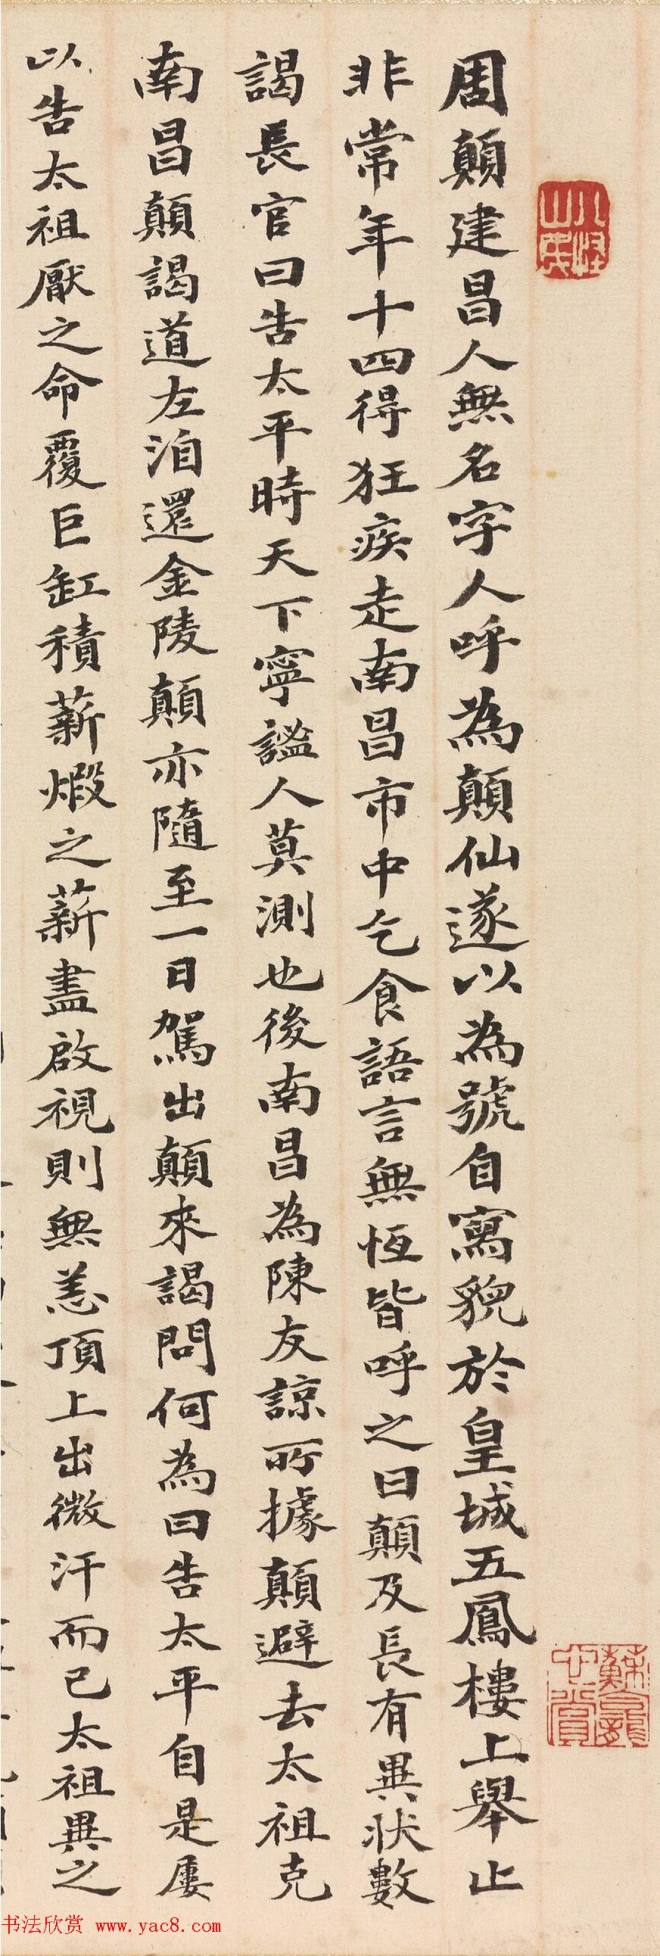 周顛建昌人無名字人呼為顛仙遂以為號自寫貌於皇城五鳳樓上舉止
非常年十四得狂疾走南昌市中乞食語言無恆皆呼之曰顛及長有異狀數
謁長官曰告太平時天下寧謐人莫測也後南昌為陳友諒所據顛避去太祖克
南昌顛謁道左洎還金陵顛亦隨至一日駕出顛來謁問何為曰告太平自是屢
以告太祖厭之命覆巨缸積薪煅之薪盡啟視則無恙頂上出微汗而已太祖異之
书法欣赏 www.yac8.com